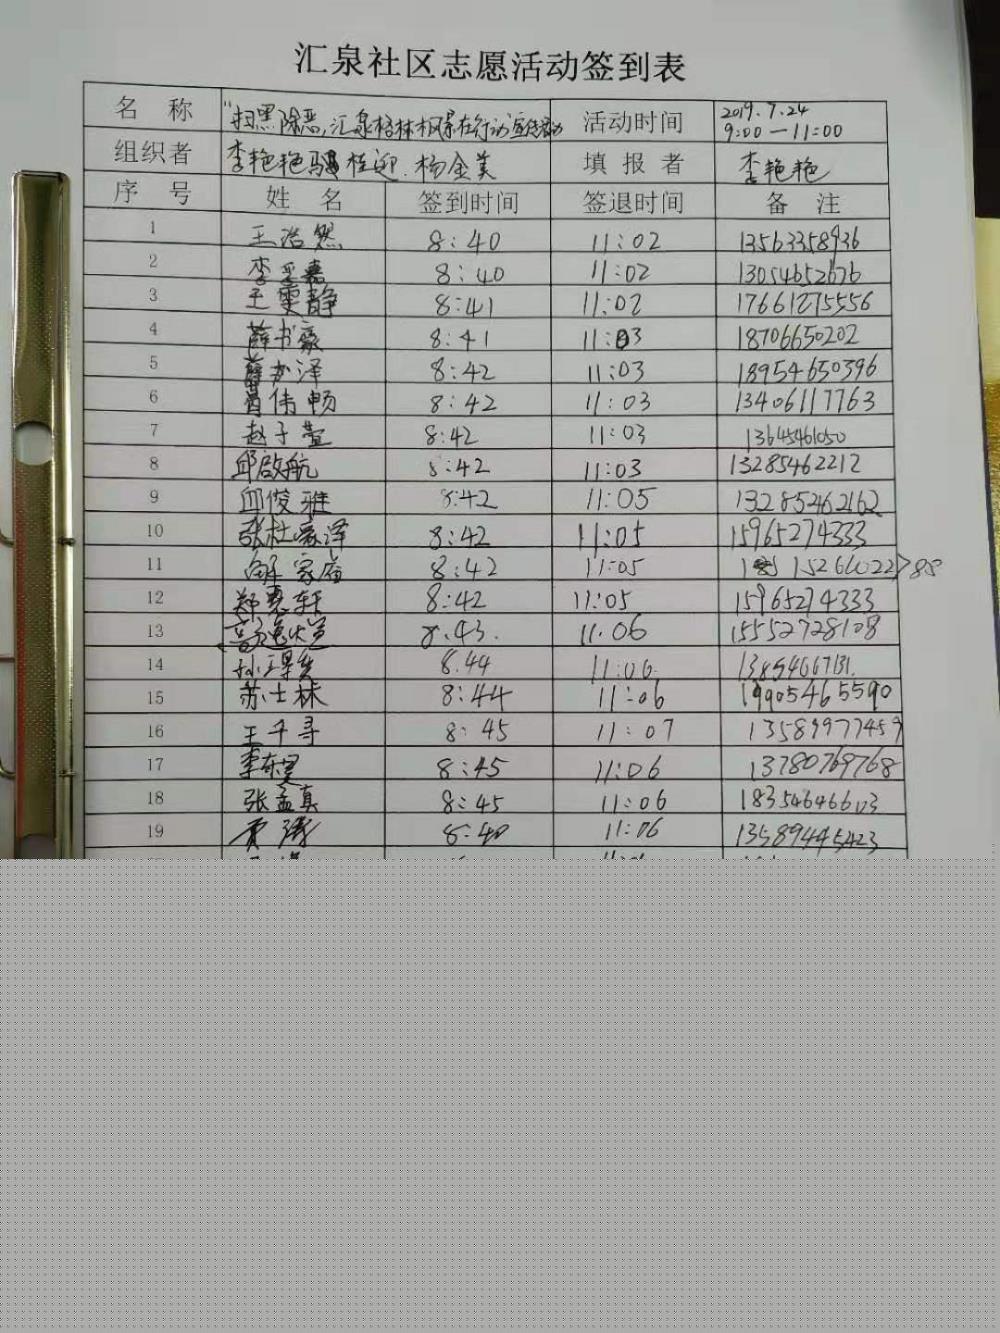 汇泉社区志愿活动签到表
名 称 "扫黑除恶,汇泉格林枫景在行动"宣传活动 活动时间 2019.7.24 9:00—11:00
组织者 李艳艳 桂迎.杨金美 填 报 者 李艳艳
序 号 姓 名 签到时间 签退时间 备 注
1 王浩然 8:40 11:02 13563358936
2 李采嘉 8:40 11:02 13054652676
3 王雯静 8:41 11:02 17661275556
4 薛书豪 8:41 11:03 18706650202
5 薛书泽 8:42 11:03 18954650396
6 曹伟畅 8:42 11:03 13406117763
7 赵子萱 8:42 11:03 13645461050
8 邱啟航 8:42 11:03 13285462212
9 邱俊雅 8:42 11:05 13285462162
10 张杜豪泽 8:42 11:05 15965274333
11 解家 8:42 11:05 15264022788
12 郑惠轩 8:42 11:05 15965274333
13 8.43. 11.06 15552728108
14 孙 8.44 11:06. 13854667131.
15 苏士林 8:44 11:06 19905465590
16 王千寻 8:45 11:07 13589977459
17 李东昊 8:45 11:06 13780769768
18 张孟真 8:45 11:06 18354646603
19 贾 8:40 11:06 13589445423